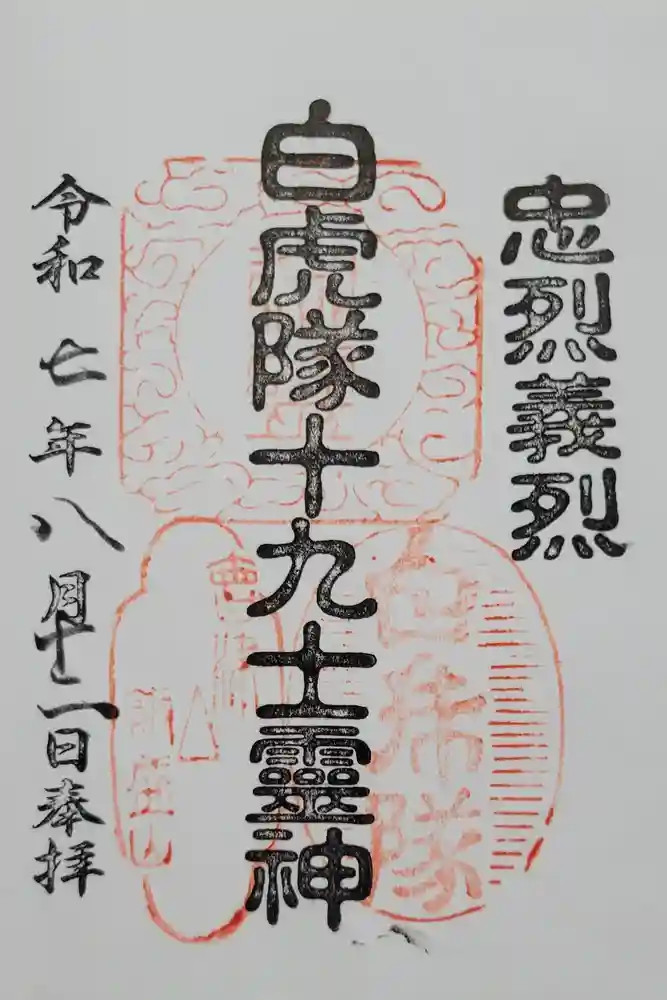 忠烈義烈
白虎隊十九士靈神
令和七年八月十二日奉拝
白虎隊
會津
飯盛山